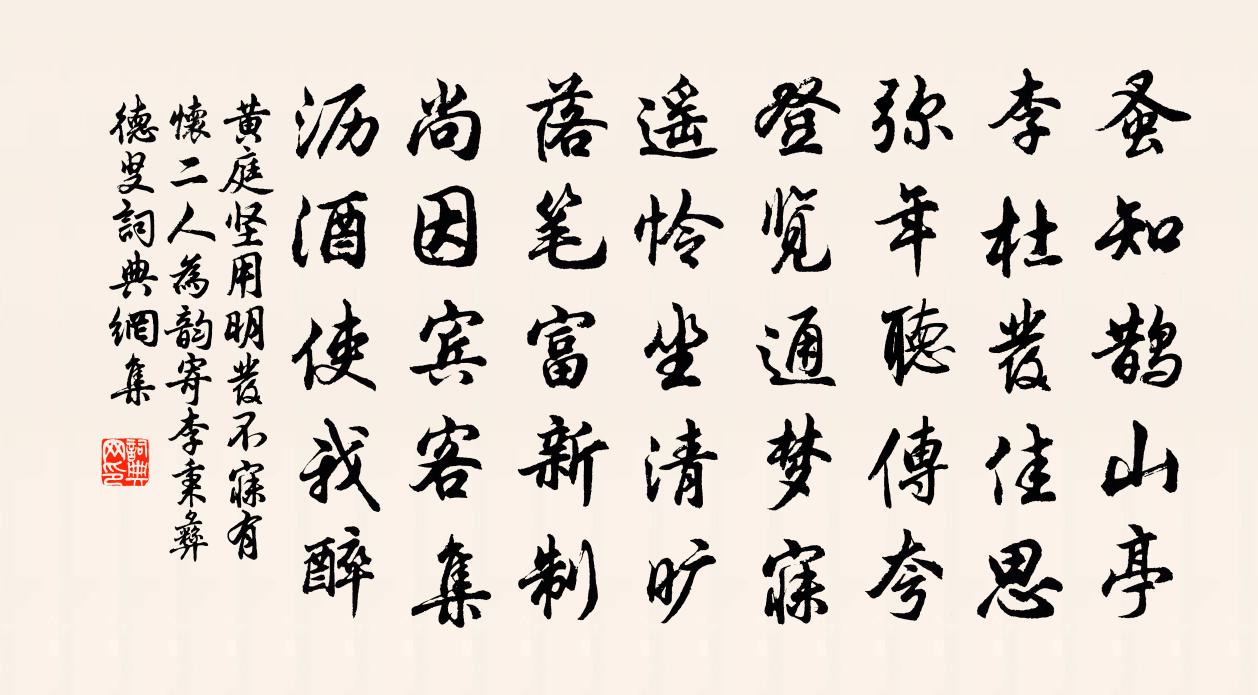 蚤知鹊山亭
李杜發佳思
弥年聽傳夸
登览通梦寐
遥怜坐清旷
落笔富新制
尚因宾客集
沥酒使我醉
黄庭坚用明發不寐有
懷二人為韵寄李秉彝
德叟詞典網集
詞典网印